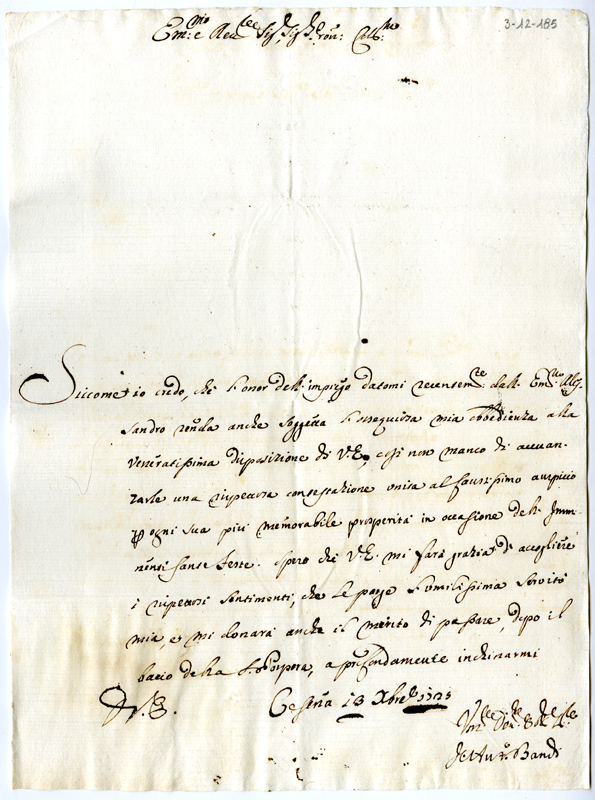 3-12-185
Em:mo e Rev:
Siccome io credo, che l'onor dell'impiego datomi recensem:te dall' Em:mo Ales-
sandro renda anche soggetta l'ossequiosa mia obbedienza alla
veneratissima disposizione di V.E., così non manco di avvan-
zarle una rispettosa contestazione unita al faustissimo auspicio
ogni sua più memorabile prosperità in occasione delle Immi-
nenti sante feste. Spero che V.E. mi farà grazia di accogliere
i rispettosi sentimenti, che le porge l'umilissima servitù
mia, e mi donarà anche il merito di passare, dopo il
bacio della Porpora, a profondamente inchinarmi
D. V. E.
Cesena 13 Xbre 1725
Bandi